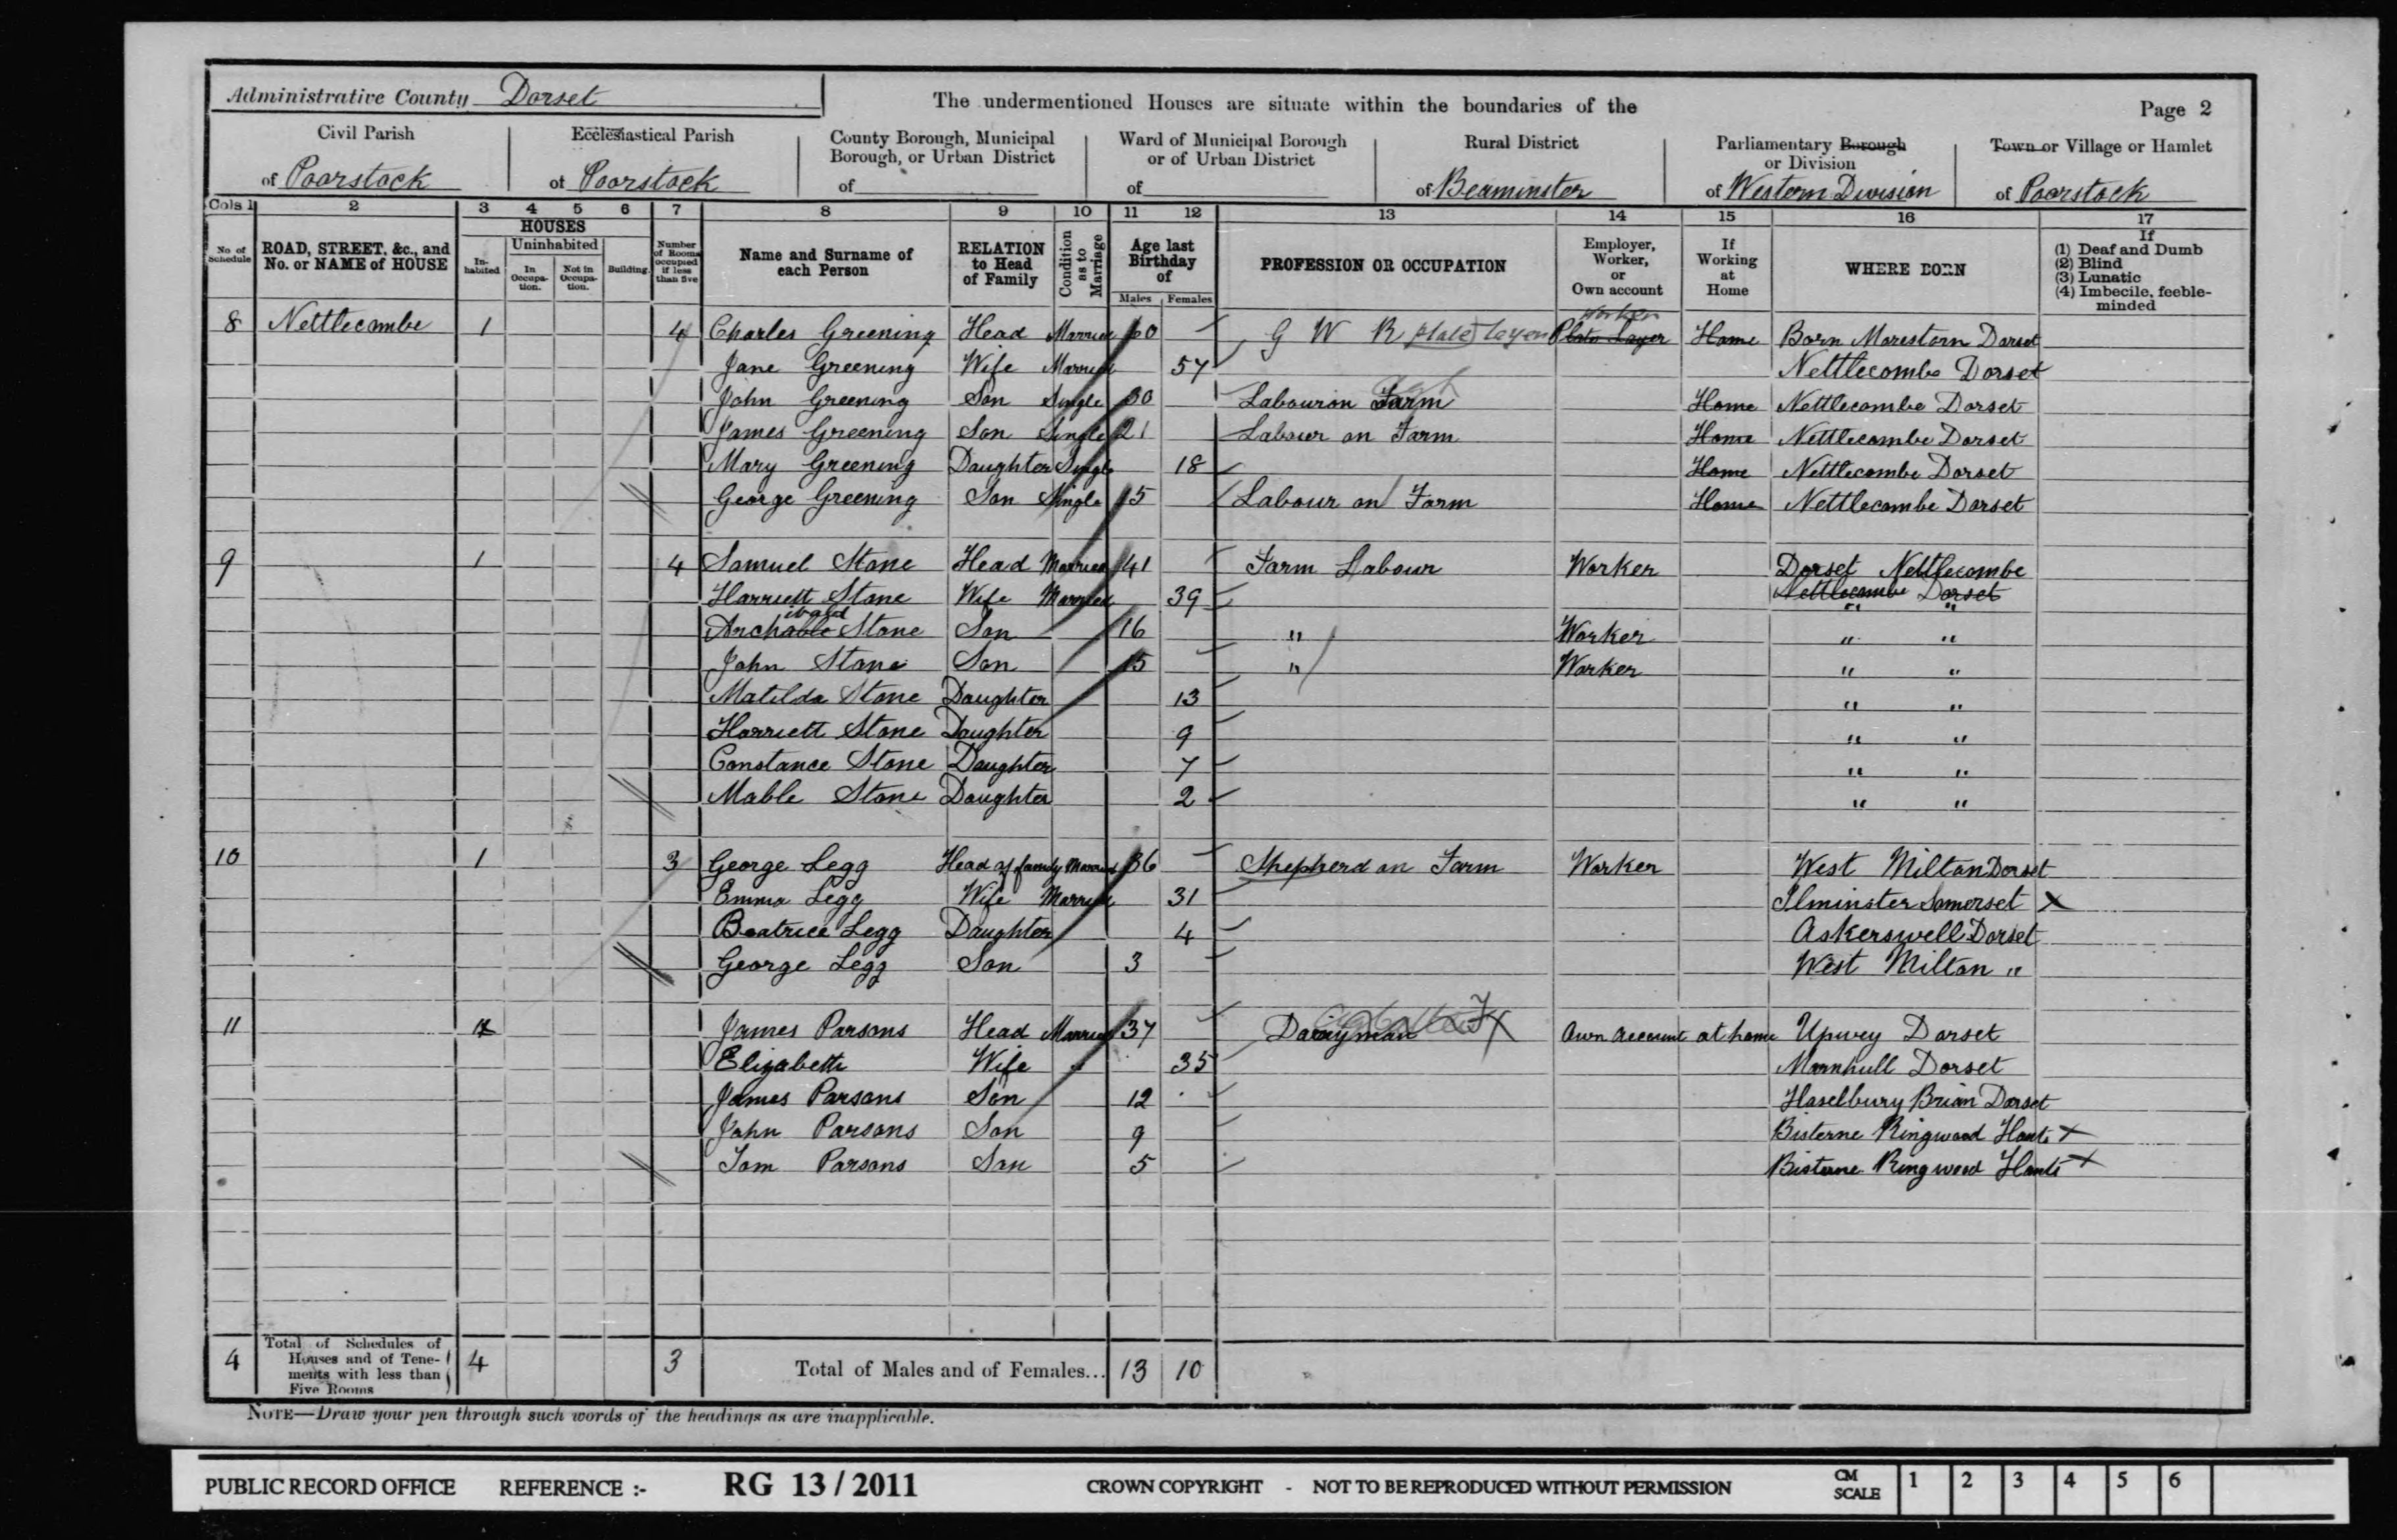 Administrative County Dorset
The undermentioned Houses are situate within the boundaries of the
Page 2
Civil Parish of Poorstock
Ecclesiastical Parish of Poorstock
County Borough, Municipal Borough, or Urban District of
Ward of Municipal Borough or of Urban District of
Rural District of Beaminster
Parliamentary Borough or Division of Western Division
Town or Village or Hamlet of Poorstock
Cols 1 2 3 4 5 6 7 8 9 10 11 12 13 14 15 16 17
No. of Schedule
ROAD, STREET, &c., and No. or NAME of HOUSE
HOUSES
In-habited
Uninhabited
In Occupa-tion.
Not in Occupa-tion.
Building
Number of Rooms occupied if less than five
Name and Surname of each Person
RELATION to Head of Family
Condition as to Marriage
Age last Birthday of
Males Females
PROFESSION OR OCCUPATION
Employer, Worker, or Own account
If Working at Home
WHERE BORN
If
(1) Deaf and Dumb
(2) Blind
(3) Lunatic
(4) Imbecile, feeble-minded
8 Nettlecombe 1 4 Charles Greening Head Married 60 G W R plate layer Plate Layer Worker Home Born Dorset
Jane Greening Wife Married 57 Nettlecombe Dorset
John Greening Son Single 30 Labour on Farm Home Nettlecombe Dorset
James Greening Son Single 21 Labour on Farm Home Nettlecombe Dorset
Mary Greening Daughter Single 18 Home Nettlecombe Dorset
George Greening Son Single 15 Labour on Farm Home Nettlecombe Dorset
9 1 4 Samuel Stone Head Married 41 Farm Labour Worker Dorset Nettlecombe
Harriett Stone Wife Married 39 Nettlecombe Dorset " "
Archable ibald Stone Son 16 " Worker " "
John Stone Son 15 " Worker " "
Matilda Stone Daughter 13 " "
Harriett Stone Daughter 9 " "
Constance Stone Daughter 7 " "
Mable Stone Daughter 2 " "
10 1 3 George Legg Head of family Married 36 Shepherd on Farm Worker West Milton Dorset
Emma Legg Wife Married 31 Ilminster Somerset X
Beatrice Legg Daughter 4 Askerswell Dorset
George Legg Son 3 West Milton "
11 1 James Parsons Head Married 37 Dairyman Own Account at home Upwey Dorset
Elizabeth Wife " 35 Marnhull Dorset
James Parsons Son 12 Haselbury Brian Dorset
John Parsons Son 9 Bisterne Ringwood Hants X
Tom Parsons Son 5 Bisterne Ringwood Hants X
4 Total of Schedules of Houses and of Tene-ments with less than Five Rooms 4 3 Total of Males and of Females... 13 10
NOTE—Draw your pen through such words of the headings as are inapplicable.
PUBLIC RECORD OFFICE REFERENCE :- RG 13 / 2011 CROWN COPYRIGHT - NOT TO BE REPRODUCED WITHOUT PERMISSION CM SCALE 1 2 3 4 5 6